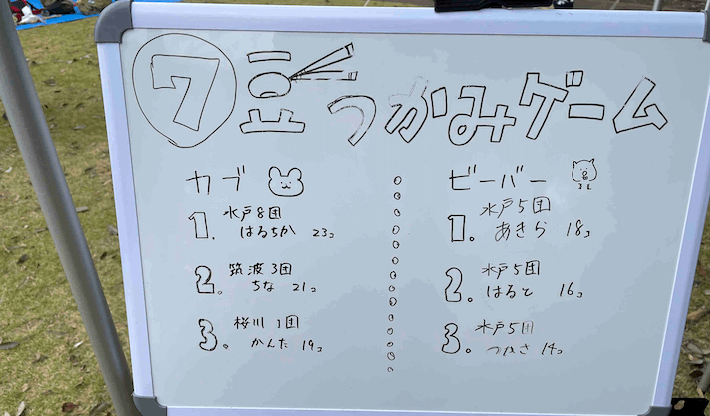 ⑦豆つかみゲーム
カブ
1. 水戸8団
はるちか 23コ
2. 筑波3団
ちな 21コ
3. 桜川1団
かんた 19コ
ビーバー
1. 水戸5団
あきら 18コ
2. 水戸5団
はると 16コ
3. 水戸5団
つばさ 14コ